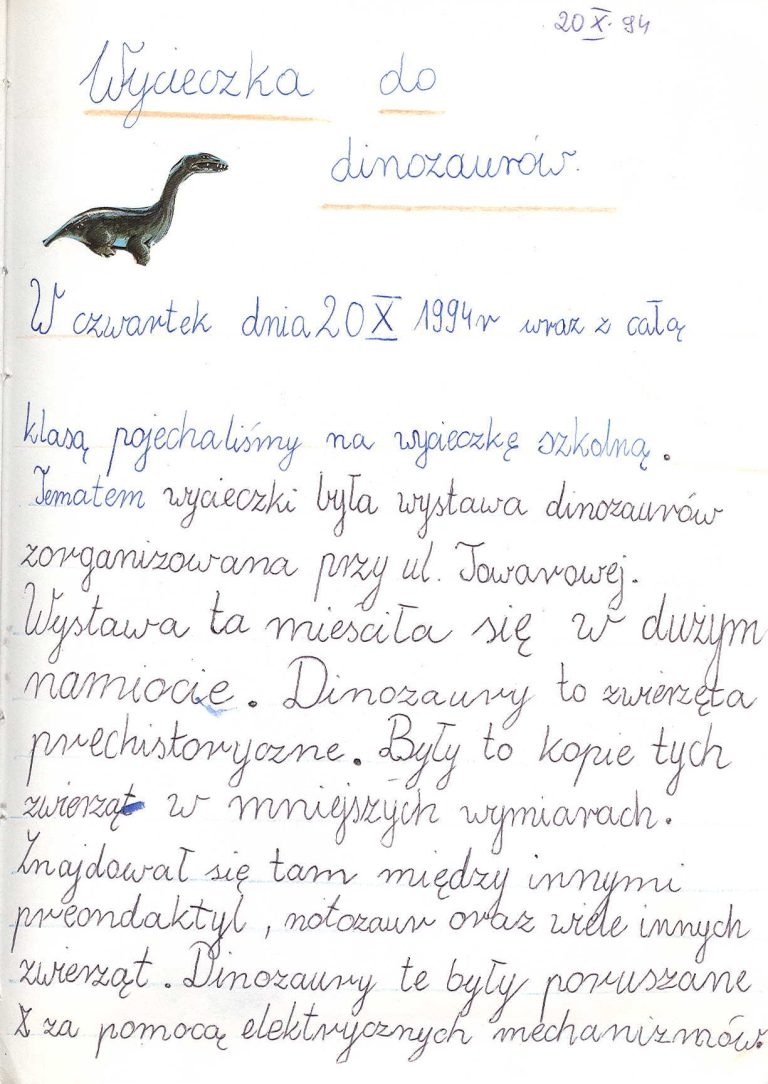 20 X. 94
Wycieczka do
dinozaurów.
W czwartek dnia 20 X 1994r wraz z całą
klasą pojechaliśmy na wycieczkę szkolną.
Tematem wycieczki była wystawa dinozaurów
zorganizowana przy ul. Towarowej.
Wystawa ta mieściła się w dużym
namiocie. Dinozaury to zwierzęta
prechistoryczne. Były to kopie tych
zwierząt w mniejszych wymiarach.
Znajdował się tam między innymi
preondaktyl, notozaur oraz wiele innych
zwierząt. Dinozaury te były poruszane
za pomocą elektrycznych mechanizmów.